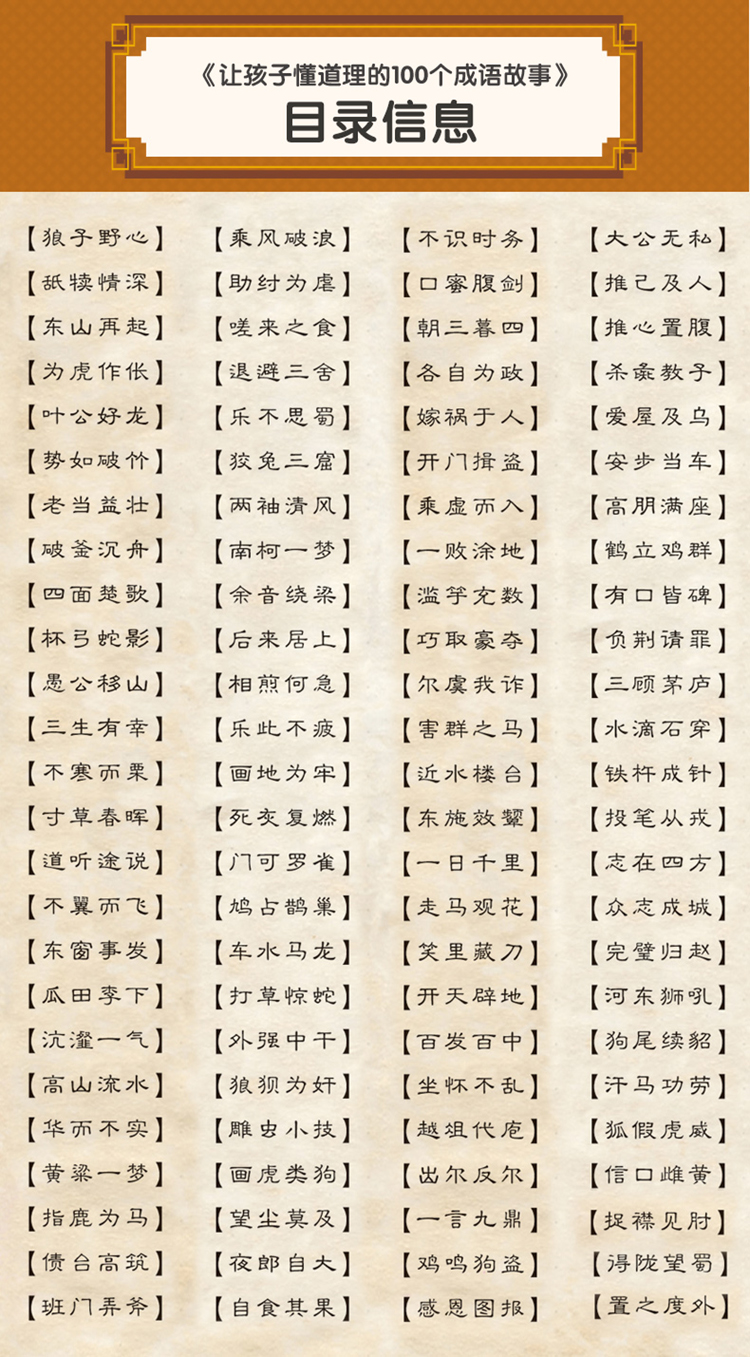 《让孩子懂道理的100个成语故事》
目录信息
【狼子野心】 【乘风破浪】 【不识时务】 【大公无私】
【舐犊情深】 【助纣为虐】 【口蜜腹剑】 【推己及人】
【东山再起】 【嗟来之食】 【朝三暮四】 【推心置腹】
【为虎作伥】 【退避三舍】 【各自为政】 【杀彘教子】
【叶公好龙】 【乐不思蜀】 【嫁祸于人】 【爱屋及乌】
【势如破竹】 【狡兔三窟】 【开门揖盗】 【安步当车】
【老当益壮】 【两袖清风】 【乘虚而入】 【高朋满座】
【破釜沉舟】 【南柯一梦】 【一败涂地】 【鹤立鸡群】
【四面楚歌】 【余音绕梁】 【滥竽充数】 【有口皆碑】
【杯弓蛇影】 【后来居上】 【巧取豪夺】 【负荆请罪】
【愚公移山】 【相煎何急】 【尔虞我诈】 【三顾茅庐】
【三生有幸】 【乐此不疲】 【害群之马】 【水滴石穿】
【不寒而栗】 【画地为牢】 【近水楼台】 【铁杵成针】
【寸草春晖】 【死灰复燃】 【东施效颦】 【投笔从戎】
【道听途说】 【门可罗雀】 【一日千里】 【志在四方】
【不翼而飞】 【鸠占鹊巢】 【走马观花】 【众志成城】
【东窗事发】 【车水马龙】 【笑里藏刀】 【完璧归赵】
【瓜田李下】 【打草惊蛇】 【开天辟地】 【河东狮吼】
【沆瀣一气】 【外强中干】 【百发百中】 【狗尾续貂】
【高山流水】 【狼狈为奸】 【坐怀不乱】 【汗马功劳】
【华而不实】 【雕虫小技】 【越俎代庖】 【狐假虎威】
【黄粱一梦】 【画虎类狗】 【出尔反尔】 【信口雌黄】
【指鹿为马】 【望尘莫及】 【一言九鼎】 【捉襟见肘】
【债台高筑】 【夜郎自大】 【鸡鸣狗盗】 【得陇望蜀】
【班门弄斧】 【自食其果】 【感恩图报】 【置之度外】